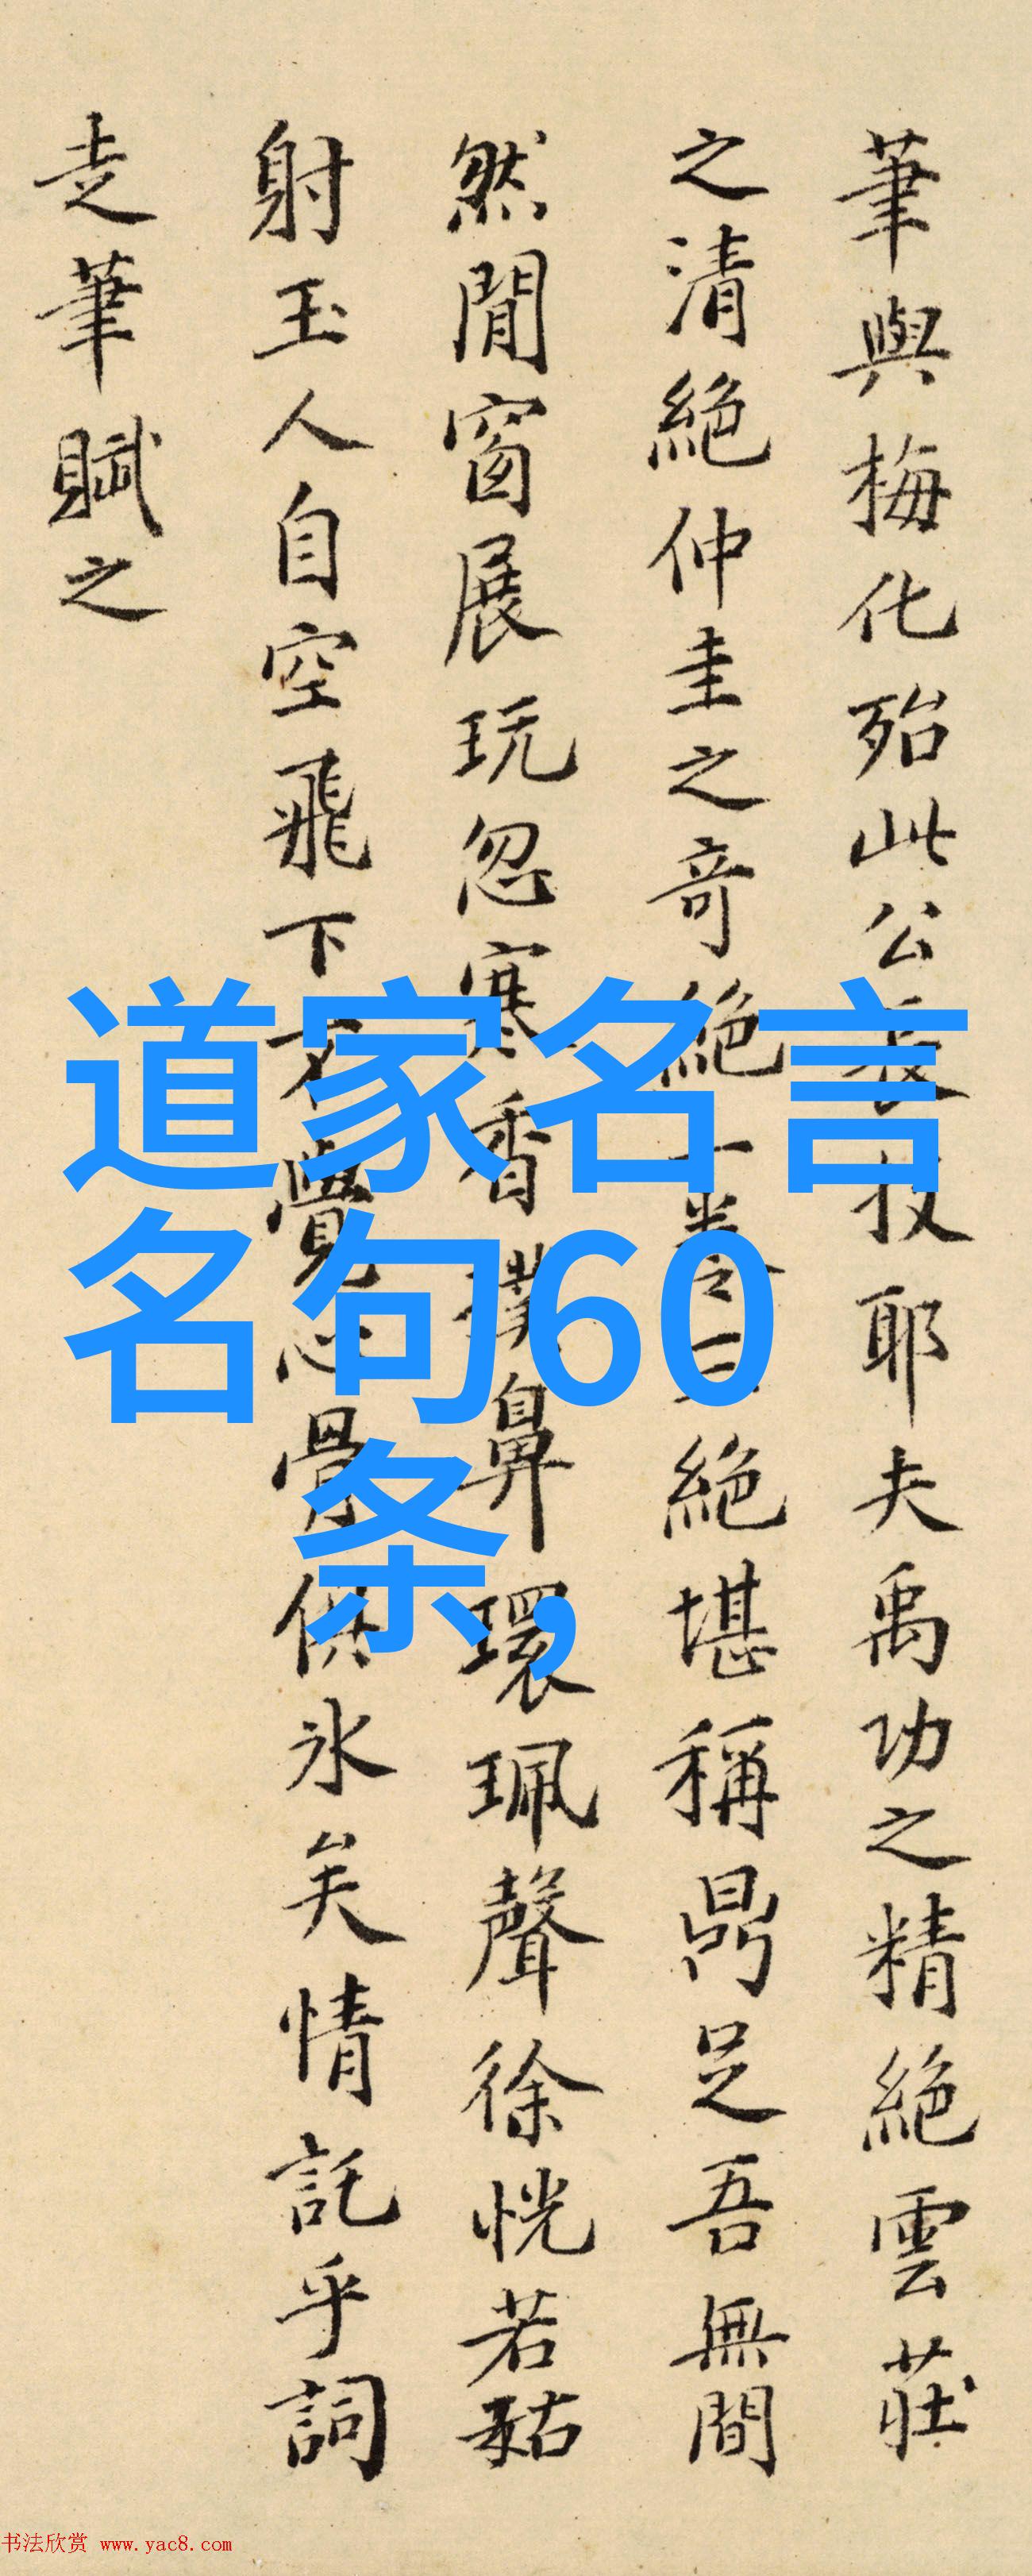 筆與梅化殆此公長技耶夫禹功之精絕雲莊
之清絕仲圭之奇絕一卷之三絕堪稱鼎足吾無間
然閒窗展玩忽寒香撲鼻環珮聲徐恍若菇
射玉人自空飛下不覺心骨俱氷矣情託乎詞
走筆賦之
道家名言
名句60
条,
书法欣赏 www.yac8.com